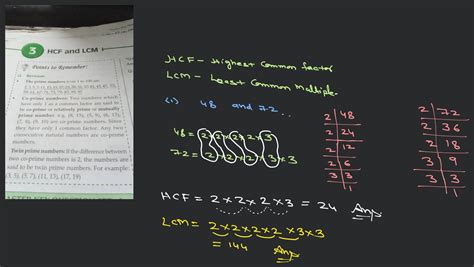 3 HCF and LCM
Points to Remember:
Co-prime numbers Two numbers which
have only 1 as a common factor are said to
be co-prime or relatively prime or mutually
prime number e.g. (8, 15), (5, 9), (8, 13),
they have only 1 common factor. Any two
consecutive natural numbers are co-prime
numbers.
Twin prime numbers If the difference between
two co-prime numbers is 2, the numbers are
said to be twin prime numbers. For example,
(3, 5), (5, 7), (11, 13), (17, 19)
HCF - Highest Common factor
LCM - Least Common Multiple
(i) 48 and 72..
48 = 2×2×2×2×3
72 = 2×2×2×3×3
2 48
2 24
2 12
2 6
3 3
1
2 72
2 36
2 18
3 9
3 3
1
HCF = 2×2×2×3 = 24 Ans
LCM = 2×2×2×2×3×3
= 144 Ans